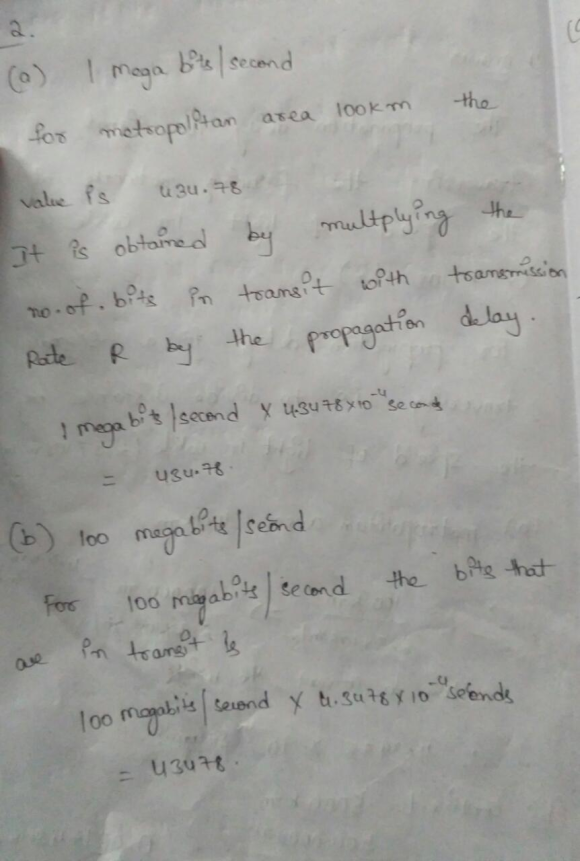 2.
(a) 1 mega bits/second
for metropolitan area 100km the
value is 434.78
It is obtained by multplying the
no.of.bits in transit with transmission
Rate R by the propagation delay.
1 megabits/second x 4.3478x10⁻⁴seconds
= 434.78.
(b) 100 megabits/seond
For 100 megabits/second the bits that
are in transit is
100 megabits/second x 4.3478x10⁻⁴seconds
= 43478.